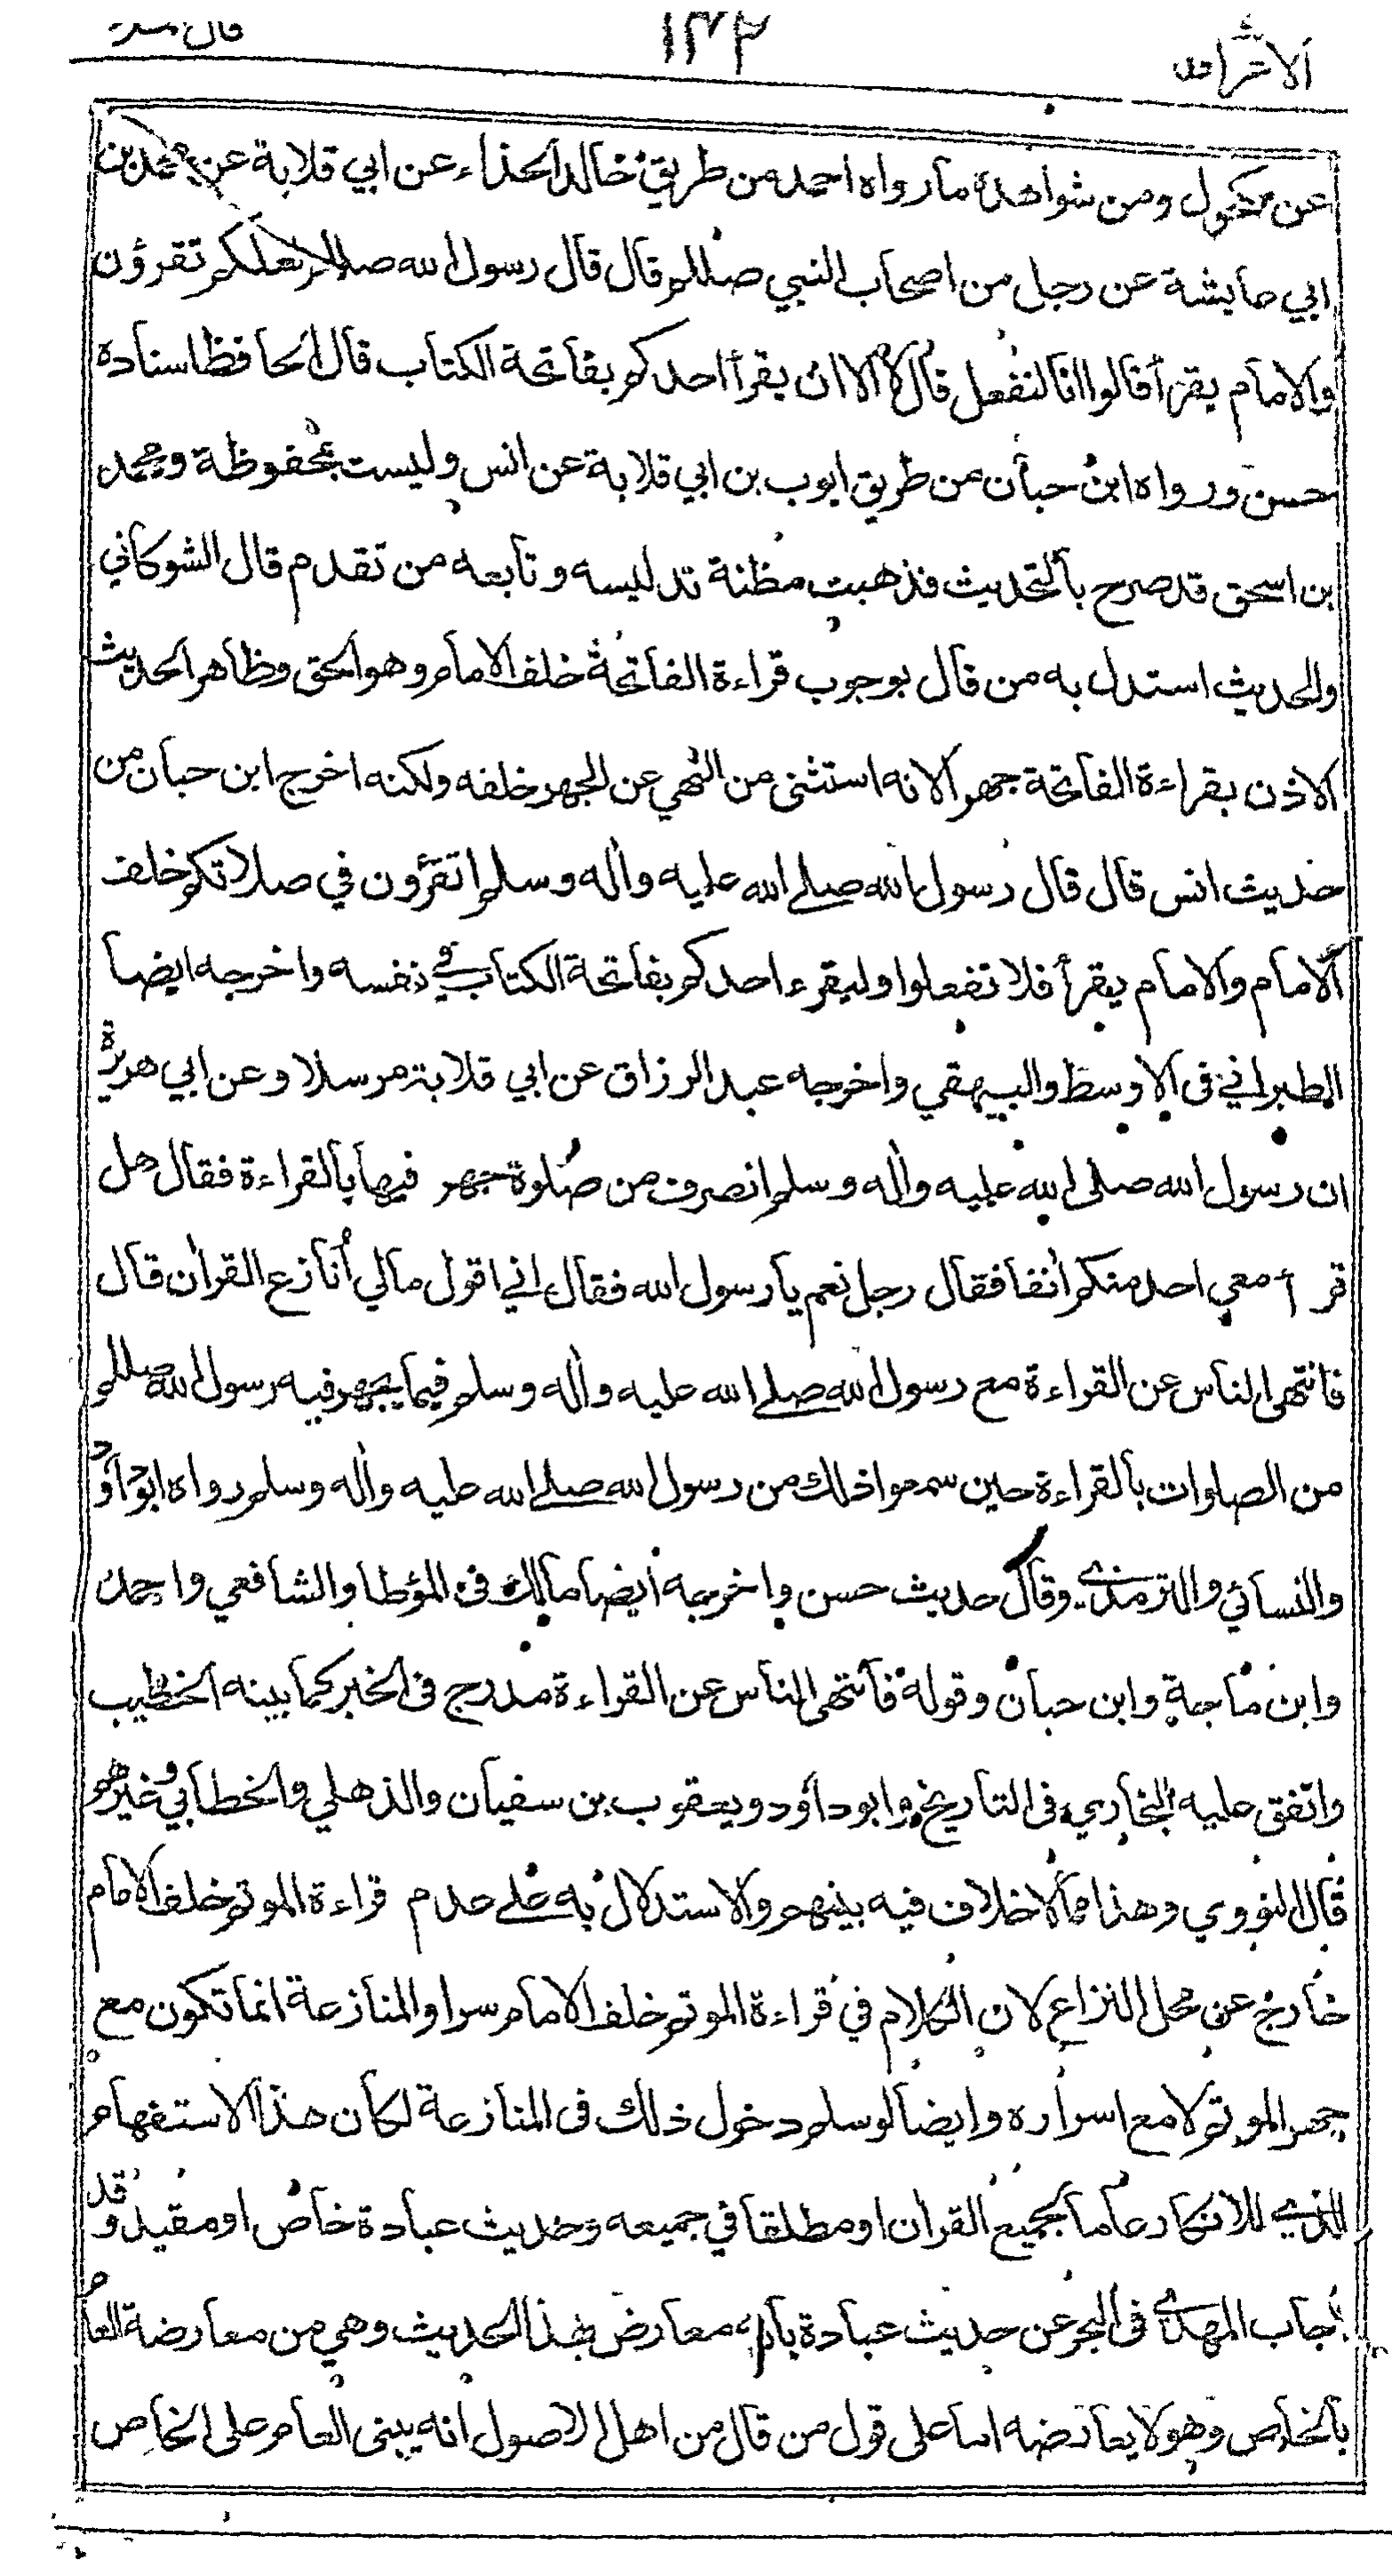 ١٣٢
عن مكحول ومن شواهده ما رواه احمد من طريق خالد الحذاء عن ابي قلابة عن محمد بن
ابي عايشة عن رجل من اصحاب النبي صللم قال قال رسول الله صللم لعلكم تقرؤن
والامام يقرأ قالوا انا لنفعل قال لا الا ان يقرأ احدكم بفاتحة الكتاب قال الحافظ اسناده
حسن ورواه ابن حبان من طريق ايوب بن ابي قلابة عن انس وليست بمحفوظة ومحمد
بن اسحق قد صرح بالتحديث فذهبت مظنة تدليسه وتابعه من تقدم قال الشوكاني
والحديث استدل به من قال بوجوب قراءة الفاتحة خلف الامام وهو الحق وظاهر الحديث
الاذن بقراءة الفاتحة جهرا لانه استثنى من النهي عن الجهر خلفه ولكنه اخرج ابن حبان من
حديث انس قال قال رسول الله صلى الله عليه واٰله وسلم اتقرؤن في صلاتكم خلف
الامام والامام يقرأ فلا تفعلوا وليقرء احدكم بفاتحة الكتاب في نفسه واخرجه ايضا
الطبراني فى الاوسط والبيهقي واخرجه عبد الرزاق عن ابي قلابة مرسلا وعن ابي هريرة
ان رسول الله صلى الله عليه واٰله وسلم انصرف من صلوة جهر فيها بالقراءة فقال هل
قرأ معي احد منكم اٰنفا فقال رجل نعم يا رسول الله فقال اني اقول مالي أُنازع القراٰن قال
فانتهى الناس عن القراءة مع رسول الله صلى الله عليه واٰله وسلم فيما يجهر فيه رسول الله صللم
من الصلوات بالقراءة حين سمعوا ذلك من رسول الله صلى الله عليه واٰله وسلم رواه ابو داؤد
والنسائي والترمذي وقال حديث حسن واخرجه أيضا مالك فى المؤطا والشافعي واحمد
وابن ماجة وابن حبان وقوله فأنتهى الناس عن القراءة مدرج فى الخبر كما بينه الخطيب
واتفق عليه البخاري فى التاريخ وابو داؤد ويعقوب بن سفيان والذهلي والخطابي وغيرهم
قال النووي وهذا مما لا خلاف فيه بينهم والاستدلال به على عدم قراءة الموتم خلف الامام
خارج عن محل النزاع لان الكلام في قراءة الموتم خلف الامام سرا والمنازعة انما تكون مع
جهر الموتم لا مع اسراره وايضا لو سلم دخول ذلك فى المنازعة لكان هذا الاستفهام
الذي للانكار عاما لجميع القراٰن او مطلقا في جميعه وحديث عبادة خاص او مقيد وقد
اجاب المهدى فى البحر عن حديث عبادة بانه معارض بهذا الحديث وهي من معارضة العام
بالخاص وهو لا يعارضه اما على قول من قال من اهل الاصول انه يبنى العام على الخاص